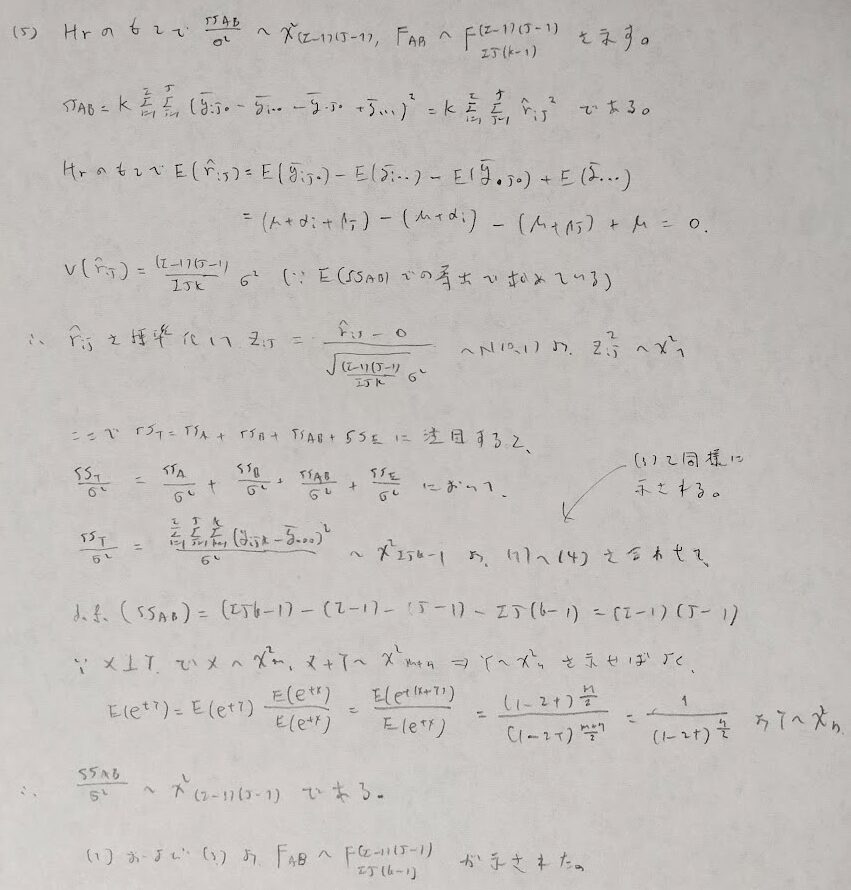 (5) Hr のもとで SSAB/σ² ~ χ²(I-1)(J-1), FAB ~ F(I-1)(J-1) IJ(k-1) を示す。
SSAB = K Σ(i=1→I) Σ(j=1→J) (ȳij。 - ȳi.. - ȳ.j。 + ȳ...)² = K Σ(i=1→I) Σ(j=1→J) r̂ij² である。
Hr のもとで E(r̂ij) = E(ȳij。) - E(ȳi..) - E(ȳ.j。) + E(ȳ...)
= (μ+αi+βj) - (μ+αi) - (μ+βj) + μ = 0.
V(r̂ij) = (I-1)(J-1)/IJK σ² (∵ E(SSAB) での導出で求めている)
∴ r̂ij を標準化して Zij = (r̂ij - 0)/√((I-1)(J-1)/IJK σ²) ~ N(0,1) より Zij² ~ χ²1
ここで SST = SSA + SSB + SSAB + SSE に注目すると、
SST/σ² = SSA/σ² + SSB/σ² + SSAB/σ² + SSE/σ² において、
(3)と同様に
示される。
SST/σ² = Σ(i=1→I) Σ(j=1→J) Σ(k=1→K) (yijk - ȳ...)²/σ² ~ χ²IJk-1 より、(1)~(4) を合わせて、
d.f. (SSAB) = (IJk-1) - (I-1) - (J-1) - IJ(k-1) = (I-1)(J-1)
∵ X⊥Y で X ~ χ²m, X+Y ~ χ²m+n ⇒ Y ~ χ²n を示せばよく、
E(e^tY) = E(e^tY) E(e^tX)/E(e^tX) = E(e^t(X+Y))/E(e^tX) = (1-2t)^(m/2)/(1-2t)^((m+n)/2) = 1/(1-2t)^(n/2) より Y ~ χ²n
∴ SSAB/σ² ~ χ²(I-1)(J-1) である。
(1) および (3) より FAB ~ F(I-1)(J-1) IJ(k-1) が示された。